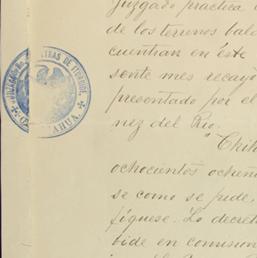 Juzgado practica
de los terrenos bald
cuentran en éste
sente mes recayó
presentado por el
nez del Rio.
"Chih
ochocientos ochen
se como se pide,
fíquese. Lo decret
bide en comision
JUZGADO DE LETRAS DE ITURBIDE
CHIHUAHUA.